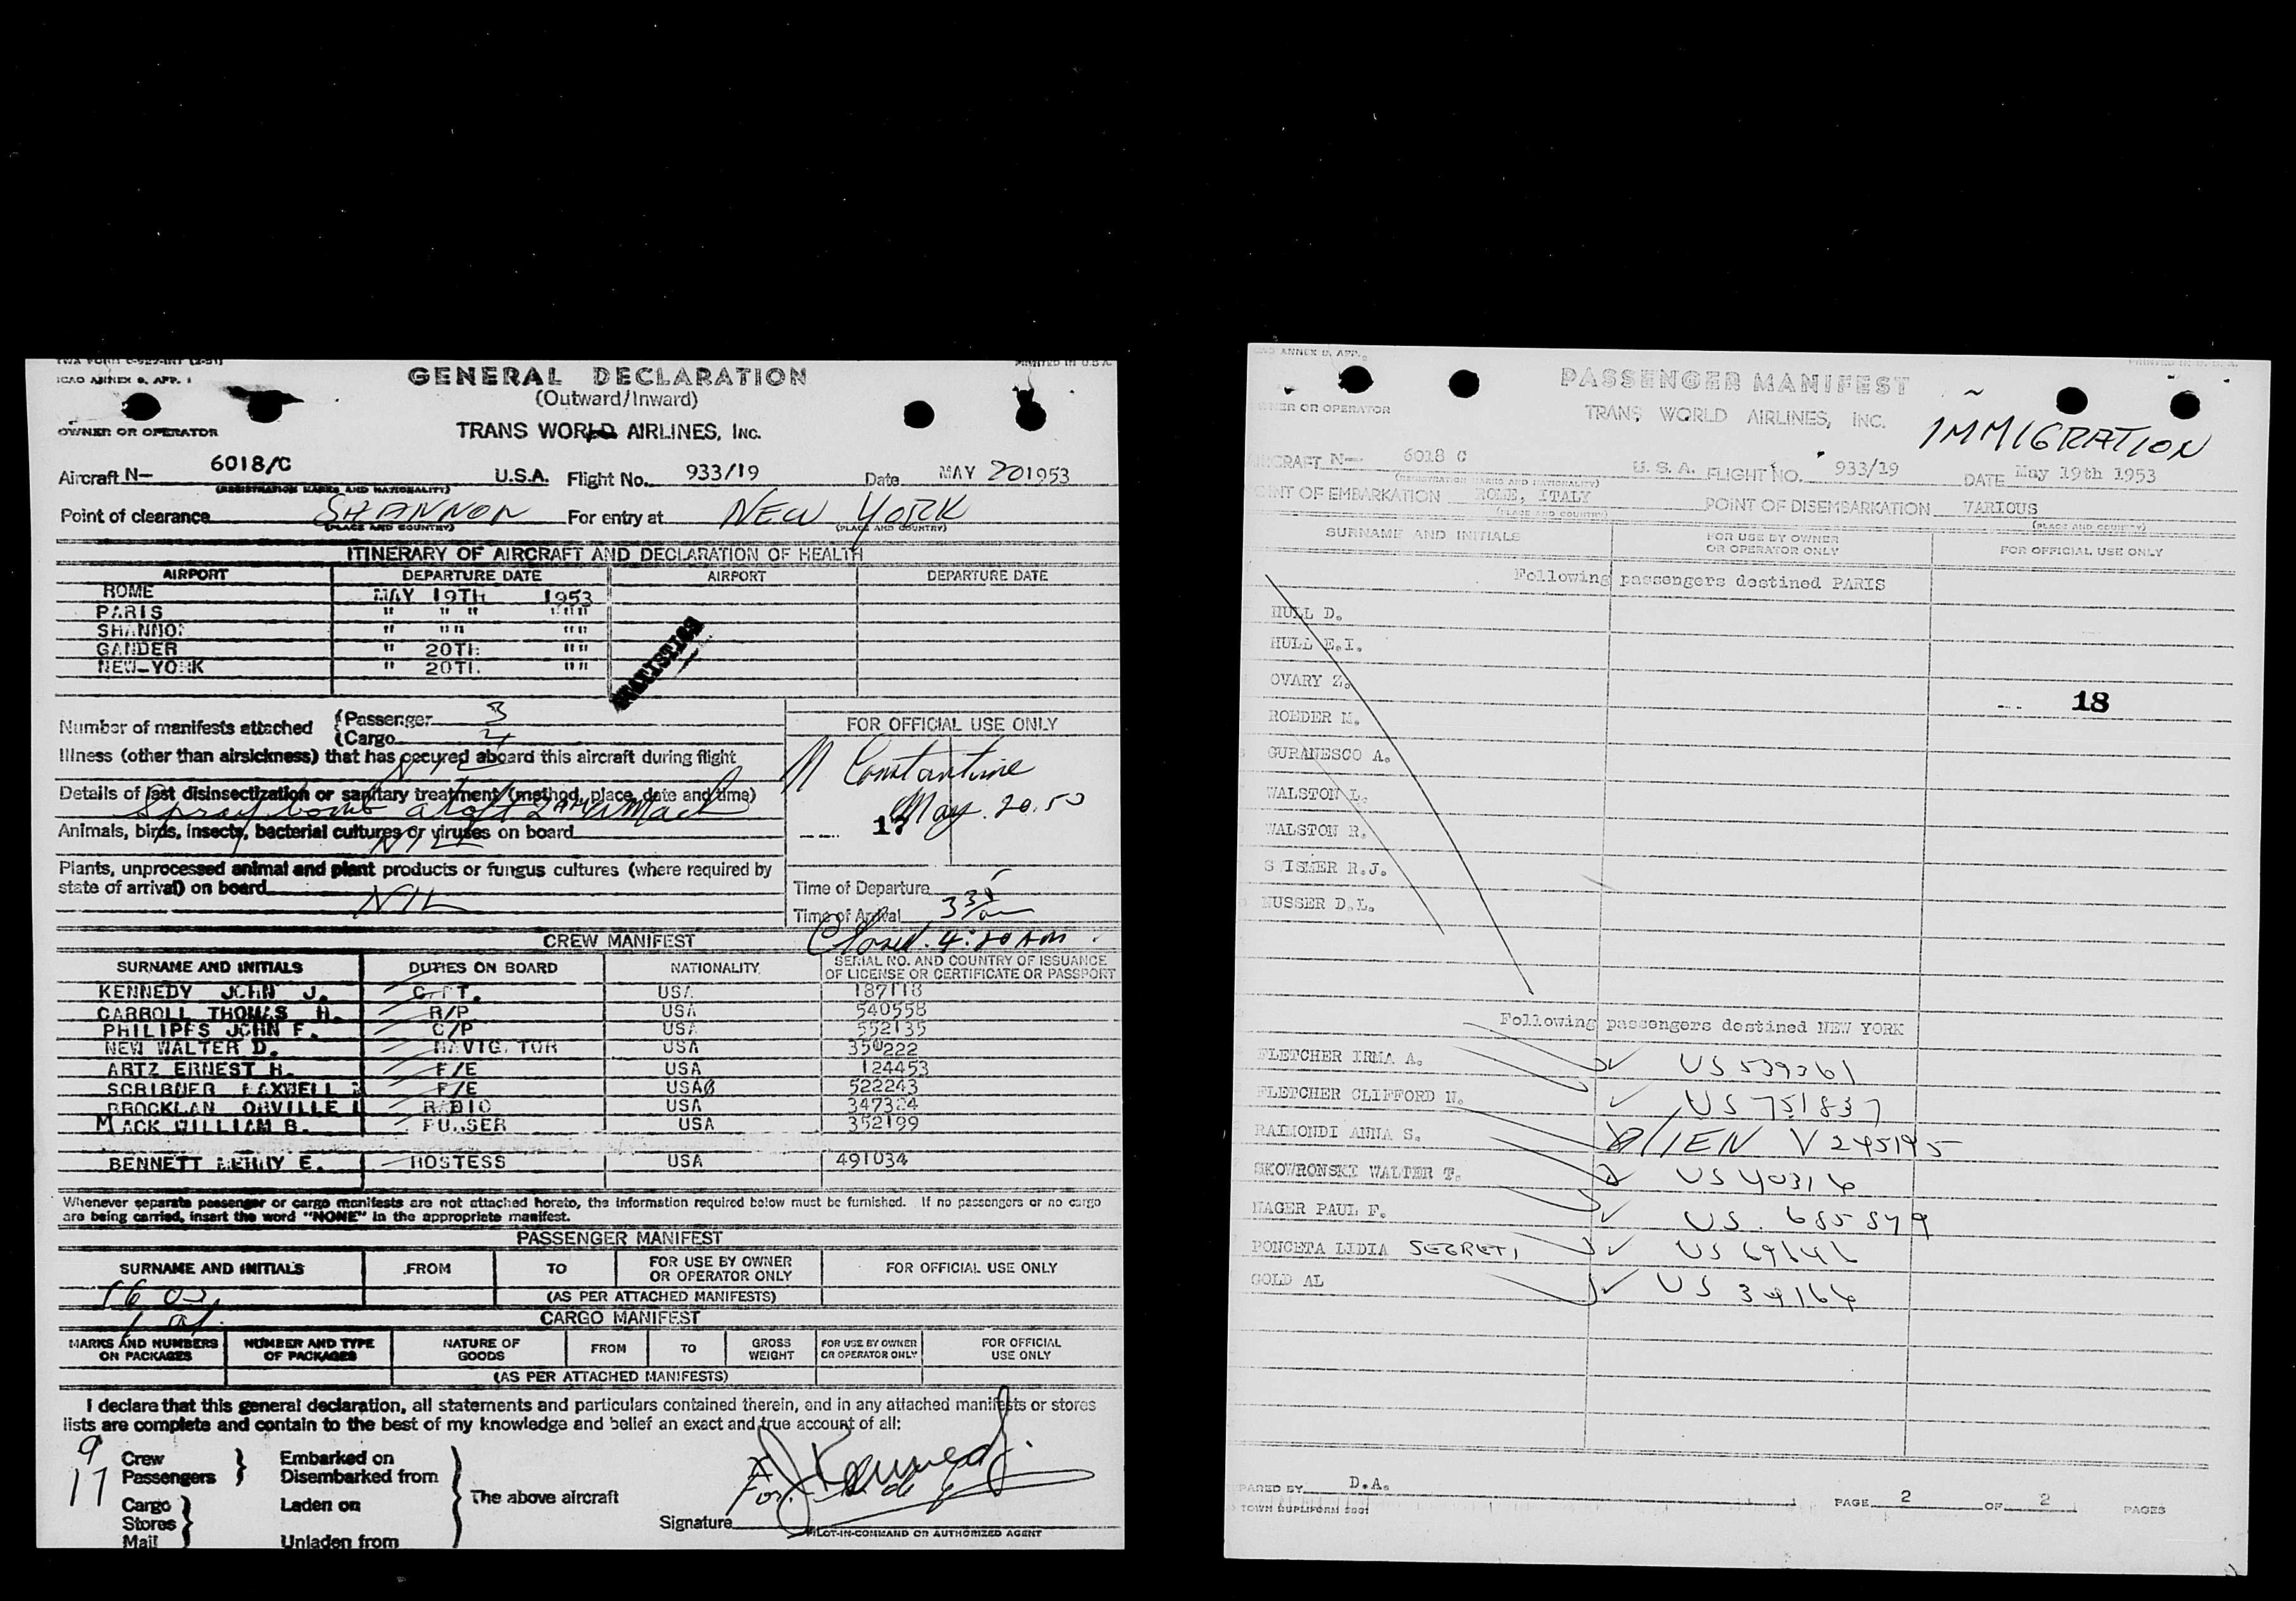 ICAO ANNEX 9, APP. 1
GENERAL DECLARATION
(Outward/Inward)
OWNER OR OPERATOR
TRANS WORLD AIRLINES, INC.
Aircraft N- 6018/C U.S.A. Flight No. 933/19 Date MAY 20 1953
(REGISTRATION MARKS AND NATIONALITY)
Point of clearance SHANNON For entry at NEW YORK
(PLACE AND COUNTRY) (PLACE AND COUNTRY)
ITINERARY OF AIRCRAFT AND DECLARATION OF HEALTH
AIRPORT DEPARTURE DATE AIRPORT DEPARTURE DATE
ROME MAY 19TH 1953
PARIS " " " " " "
SHANNO " " " " "
GANDER " 20TH " "
NEW-YORK " 20TH " "
Number of manifests attached (Passenger 3
(Cargo 4
FOR OFFICIAL USE ONLY
Illness (other than airsickness) that has occured aboard this aircraft during flight
NIL
M Constantine
May. 20.53
Details of last disinsectization or sanitary treatment (method, place, date and time)
Spray bomb aloft Mack
Animals, birds, insects, bacterial cultures or viruses on board NIL
17
Plants, unprocessed animal and plant products or fungus cultures (where required by
state of arrival) on board NIL
Time of Departure
Time of Arrival 3 35 am
Closed. 4:20 AM.
CREW MANIFEST
SURNAME AND INITIALS DUTIES ON BOARD NATIONALITY SERIAL NO. AND COUNTRY OF ISSUANCE
OF LICENSE OR CERTIFICATE OR PASSPORT
KENNEDY JOHN J. CAPT. USA 187118
CARROLL THOMAS H. R/P USA 540558
PHILIPPS JOHN F. C/P USA 552135
NEW WALTER D. NAVIGATOR USA 350222
ARTZ ERNEST H. F/E USA 124453
SCRIBNER MAXWELL F/E USA 522243
BROCKLAN ORVILLE RADIO USA 347324
MACK WILLIAM B. PURSER USA 352199
BENNETT E. HOSTESS USA 491034
Whenever separate passenger or cargo manifests are not attached hereto, the information required below must be furnished. If no passengers or no cargo
are being carried, insert the word "NONE" in the appropriate manifest.
PASSENGER MANIFEST
SURNAME AND INITIALS FROM TO FOR USE BY OWNER
OR OPERATOR ONLY FOR OFFICIAL USE ONLY
16
(AS PER ATTACHED MANIFESTS)
1
CARGO MANIFEST
MARKS AND NUMBERS
ON PACKAGES NUMBER AND TYPE
OF PACKAGES NATURE OF
GOODS FROM TO GROSS
WEIGHT FOR USE BY OWNER
OR OPERATOR ONLY FOR OFFICIAL
USE ONLY
(AS PER ATTACHED MANIFESTS)
I declare that this general declaration, all statements and particulars contained therein, and in any attached manifests or stores
lists are complete and contain to the best of my knowledge and belief an exact and true account of all:
9 Crew Embarked on
17 Passengers Disembarked from
Cargo Laden on
Stores The above aircraft
Mail Unladen from
For J. J. Kennedy
Signature
PILOT-IN-COMMAND OR AUTHORIZED AGENT
PASSENGER MANIFEST
OWNER OR OPERATOR
TRANS WORLD AIRLINES, INC.
IMMIGRATION
AIRCRAFT N- 6018 C U.S.A. FLIGHT NO. 933/19 DATE May 19th 1953
(REGISTRATION MARKS AND NATIONALITY)
POINT OF EMBARKATION ROME, ITALY POINT OF DISEMBARKATION VARIOUS
(PLACE AND COUNTRY) (PLACE AND COUNTRY)
SURNAME AND INITIALS FOR USE BY OWNER
OR OPERATOR ONLY FOR OFFICIAL USE ONLY
Following passengers destined PARIS
HULL D.
HULL E.I.
OVARY Z.
18
ROEDER M.
GURANESCO A.
WALSTON L.
WALSTON R.
S ISMER R.J.
MUSSER D.L.
Following passengers destined NEW YORK
FLETCHER IRMA A. US 539361
FLETCHER CLIFFORD N. US 751837
RAIMONDI ANNA S. ALIEN V 245195
SKOWRONSKI WALTER T. US 40316
NAGER PAUL F. US. 685879
PONCETA LIDIA SEGRETI US 69646
GOLD AL US 34166
PREPARED BY D.A.
PAGE 2 OF 2 PAGES